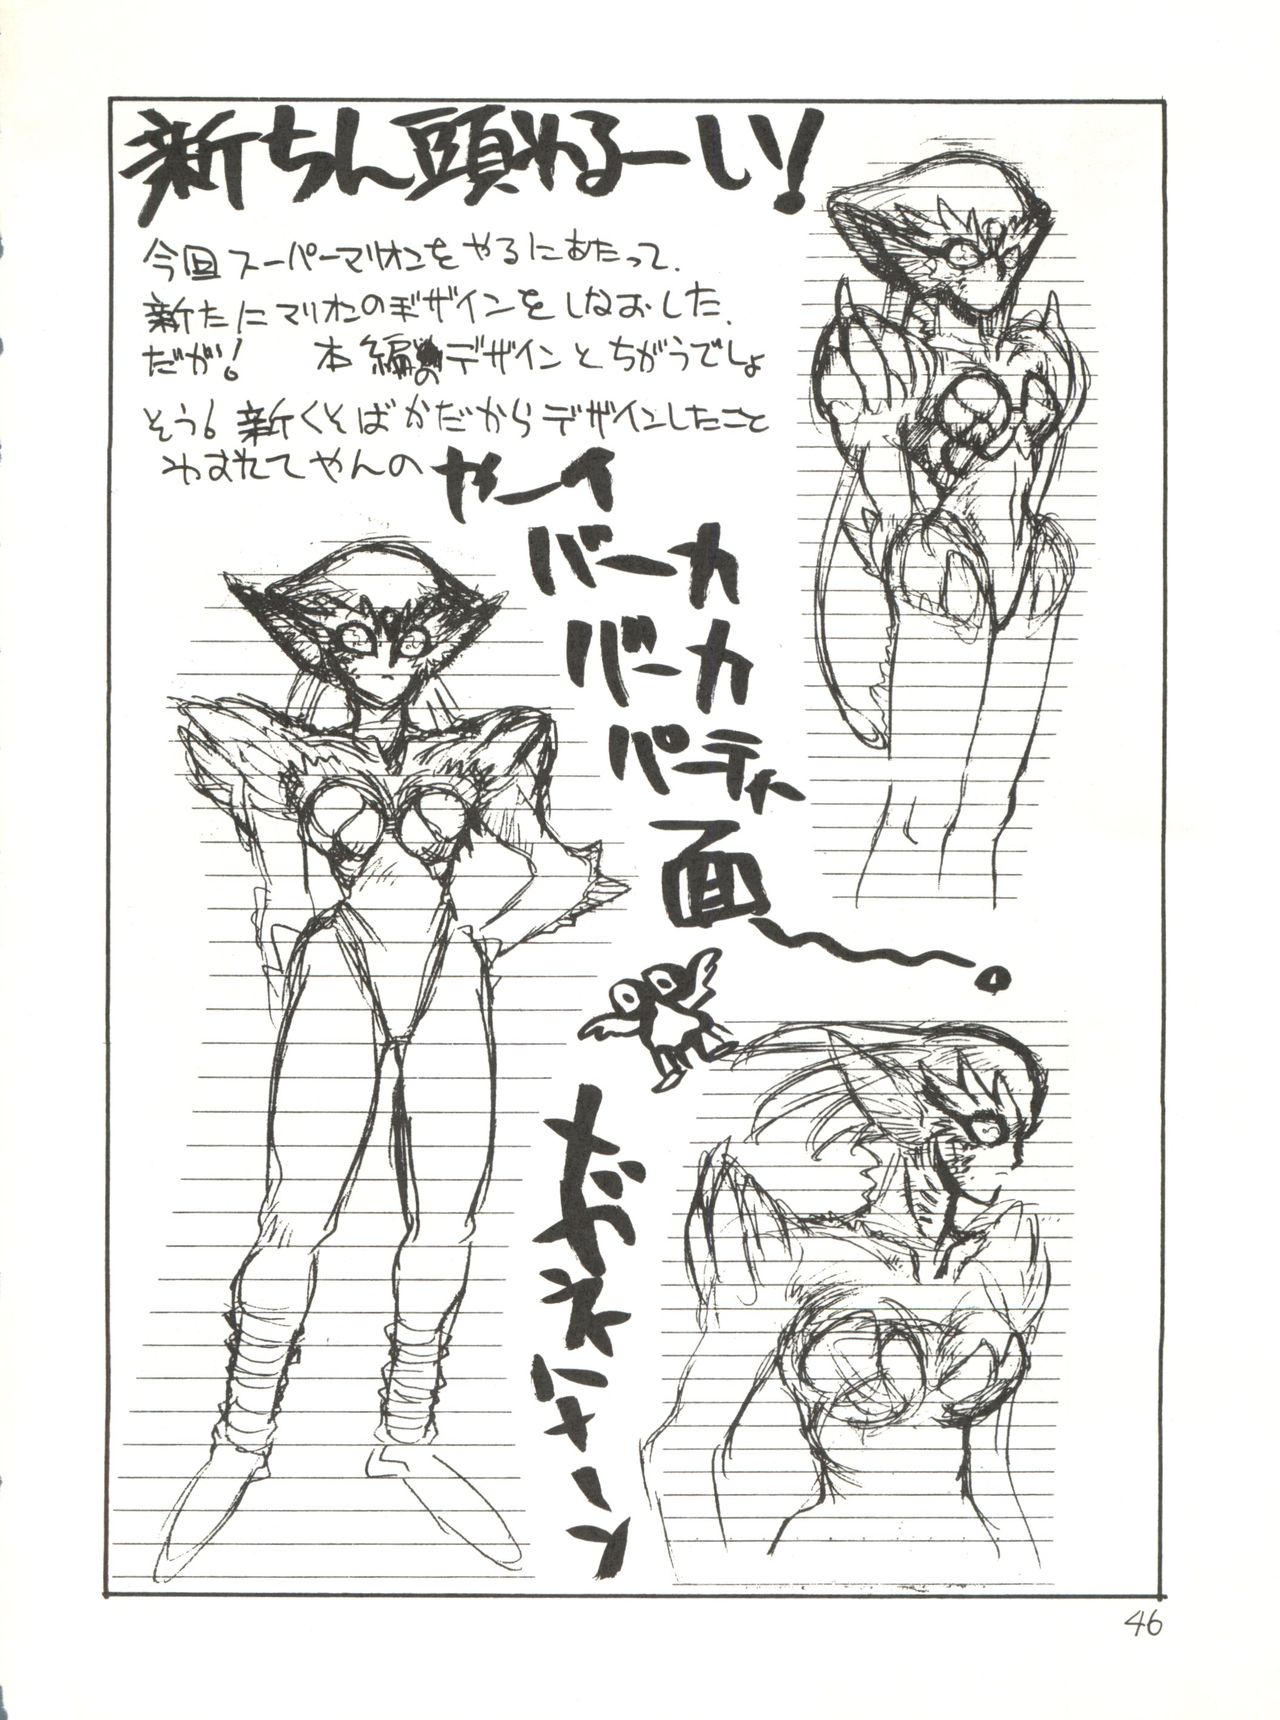 新ちん頭わるーい!
今回スーパーマリオンをやるにあたって、
新たにマリオンのデザインをしなおした、
だが! 本編のデザインとちがうでしょ
そう。新くそばかだからデザインしたこと
わすれてやんの
やーイ
バーカ
バーカ
パーティー
面
46